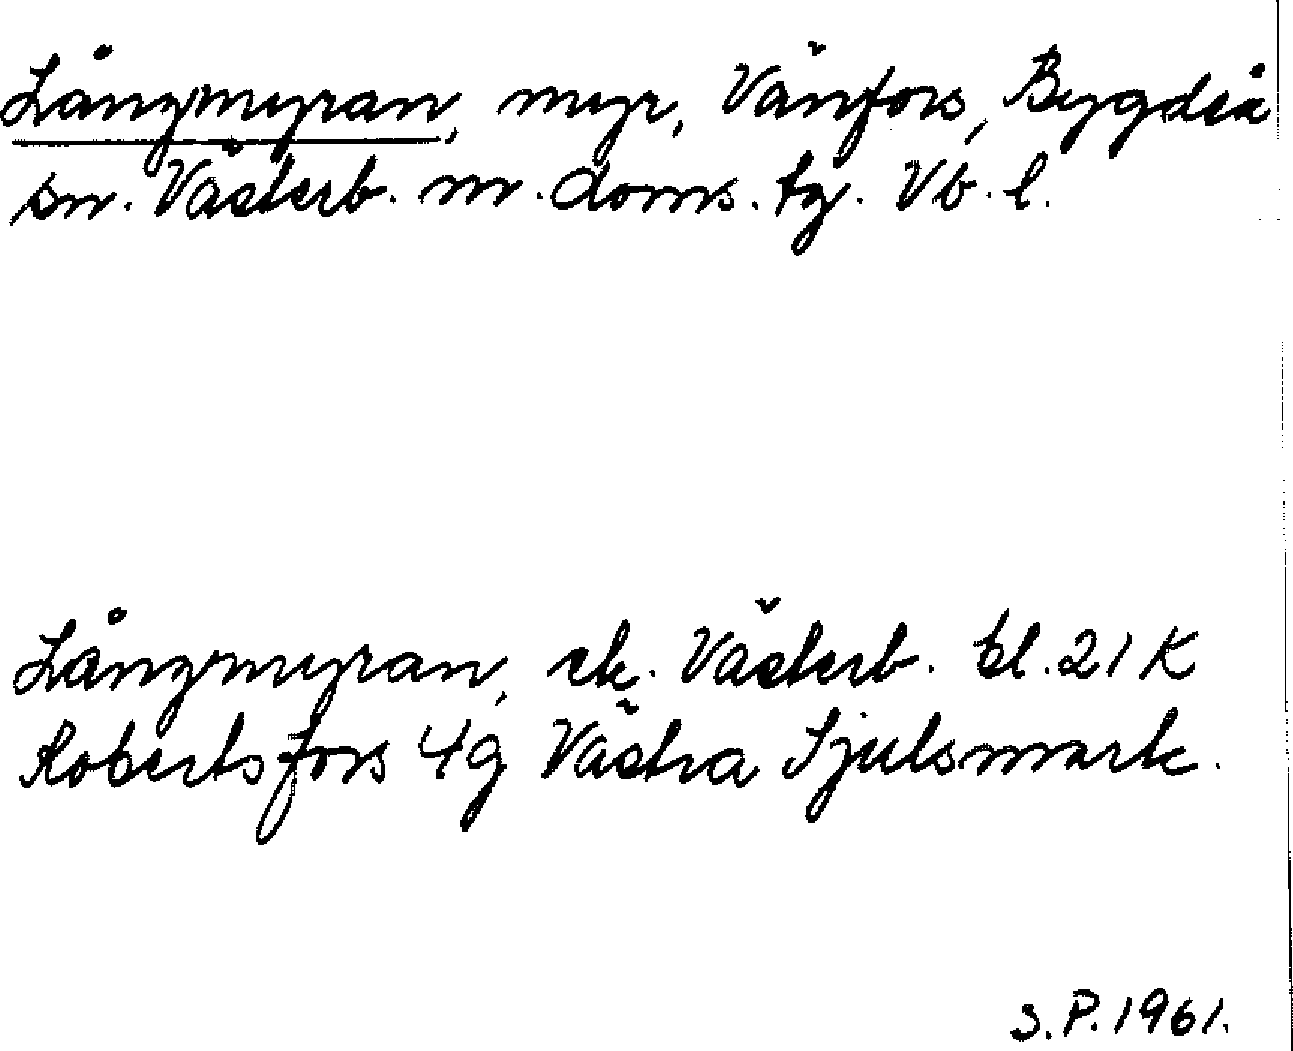 Långmyran, myr, Vänfors, Bygdeå
sn. Västerb. n. doms. tg. Vb. l.
Långmyran, ek. Västerb. bl. 21 K
Robertsfors 4g Västra Sjulsmark.
S.P. 1961.